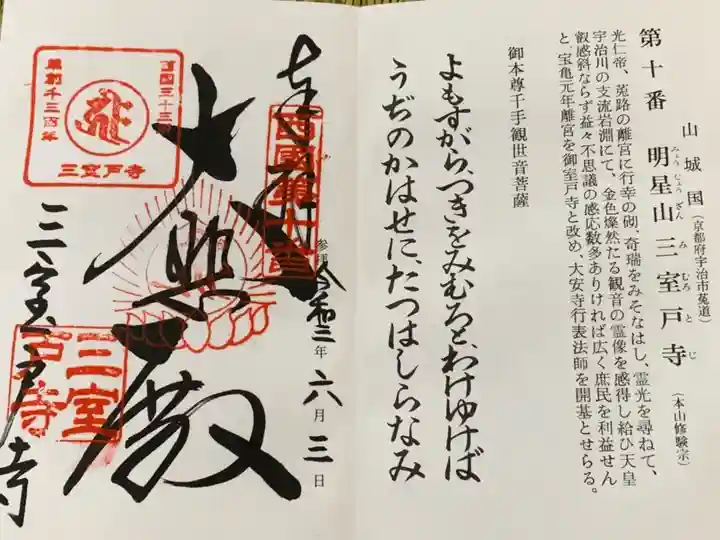 第十番 明星山三室戸寺
みょうじょうざんみむろとじ
(本山修験宗)
山城国(京都府宇治市莵道)
光仁帝、莵路の離宮に行幸の砌、奇瑞をみそなはし、霊光を尋ねて、
宇治川の支流岩淵にて、金色燦然たる観音の霊像を感得し給ひ天皇
叡感斜ならず益々不思議の感応数多ありければ広く庶民を利益せん
と、宝亀元年離宮を御室戸寺と改め、大安寺行表法師を開基とせらる。
御本尊千手観世音菩薩
よもすがら、つきをみむろと、わけゆけば
うぢのかはせに、たつはしらなみ
奉拝
西国第十番
参拝 令和三年六月三日
大悲殿
三室戸寺
西国三十三
草創千三百年
三室戸寺
三室戸寺